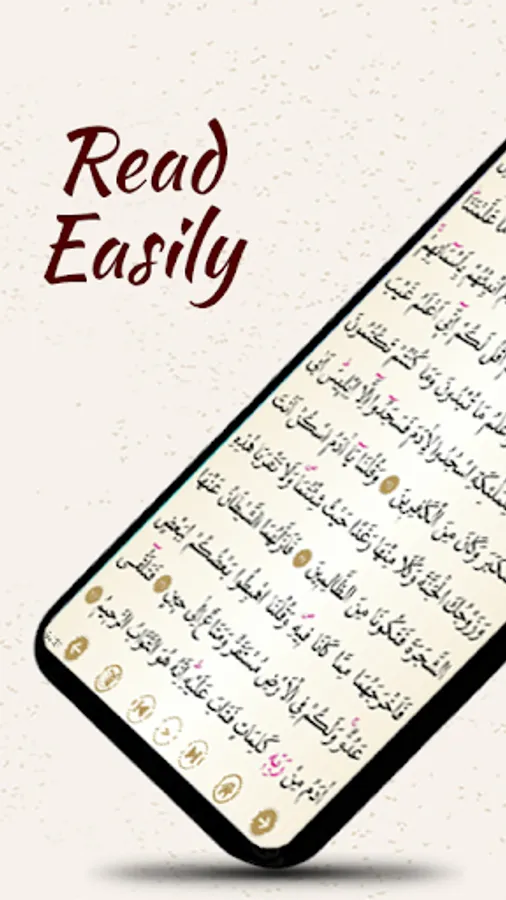 Read
Easily
عَلَّمْتَنَا
أَنْبِئْهُمْ بِأَسْمَائِهِمْ
أَقُلْ لَكُمْ إِنِّي أَعْلَمُ غَيْبَ
مَا تُبْدُونَ وَمَا كُنْتُمْ تَكْتُمُونَ
اسْجُدُوا لِآدَمَ فَسَجَدُوا إِلَّا إِبْلِيسَ أَبَى
وَكَانَ مِنَ الْكَافِرِينَ وَقُلْنَا يَا آدَمُ اسْكُنْ أَنْتَ
وَزَوْجُكَ الْجَنَّةَ وَكُلَا مِنْهَا رَغَدًا حَيْثُ شِئْتُمَا وَلَا تَقْرَبَا هَذِهِ
الشَّجَرَةَ فَتَكُونَا مِنَ الظَّالِمِينَ فَأَزَلَّهُمَا الشَّيْطَانُ عَنْهَا
فَأَخْرَجَهُمَا مِمَّا كَانَا فِيهِ وَقُلْنَا اهْبِطُوا بَعْضُكُمْ لِبَعْضٍ
عَدُوٌّ وَلَكُمْ فِي الْأَرْضِ مُسْتَقَرٌّ وَمَتَاعٌ إِلَى حِينٍ فَتَلَقَّى
آدَمُ مِنْ رَبِّهِ كَلِمَاتٍ فَتَابَ عَلَيْهِ إِنَّهُ هُوَ التَّوَّابُ الرَّحِيمُ